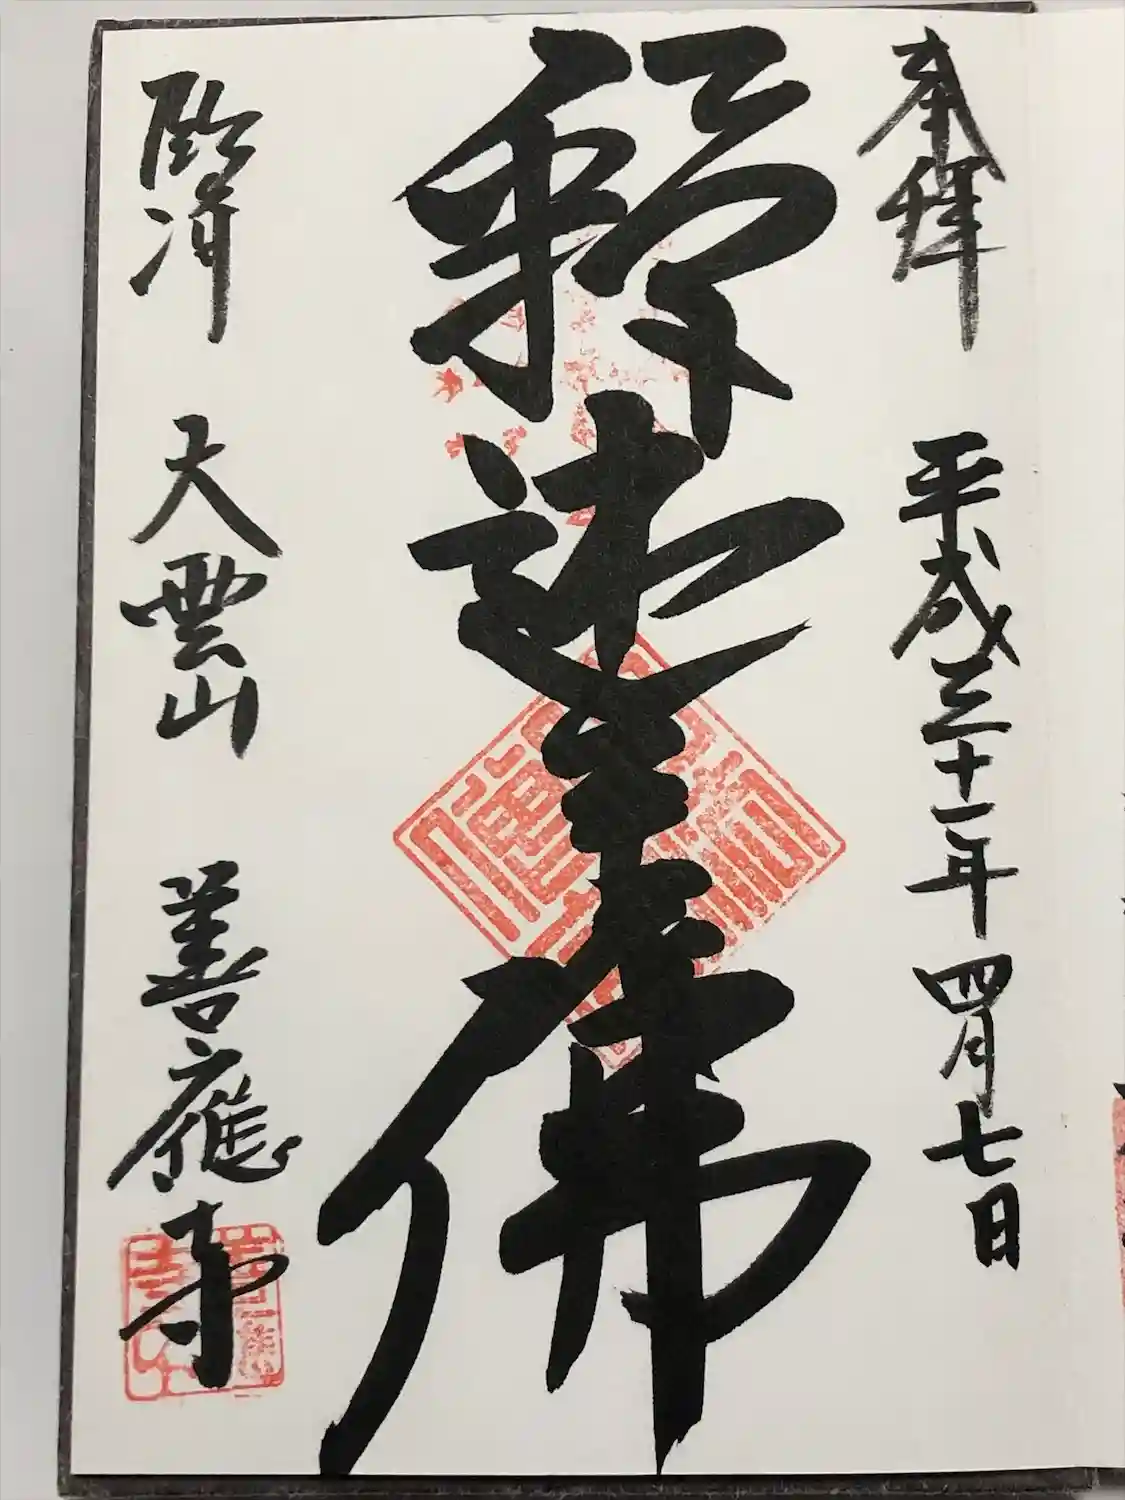 奉拝 平成三十一年四月七日
釋迦牟尼佛
臨済 大雲山 善應寺